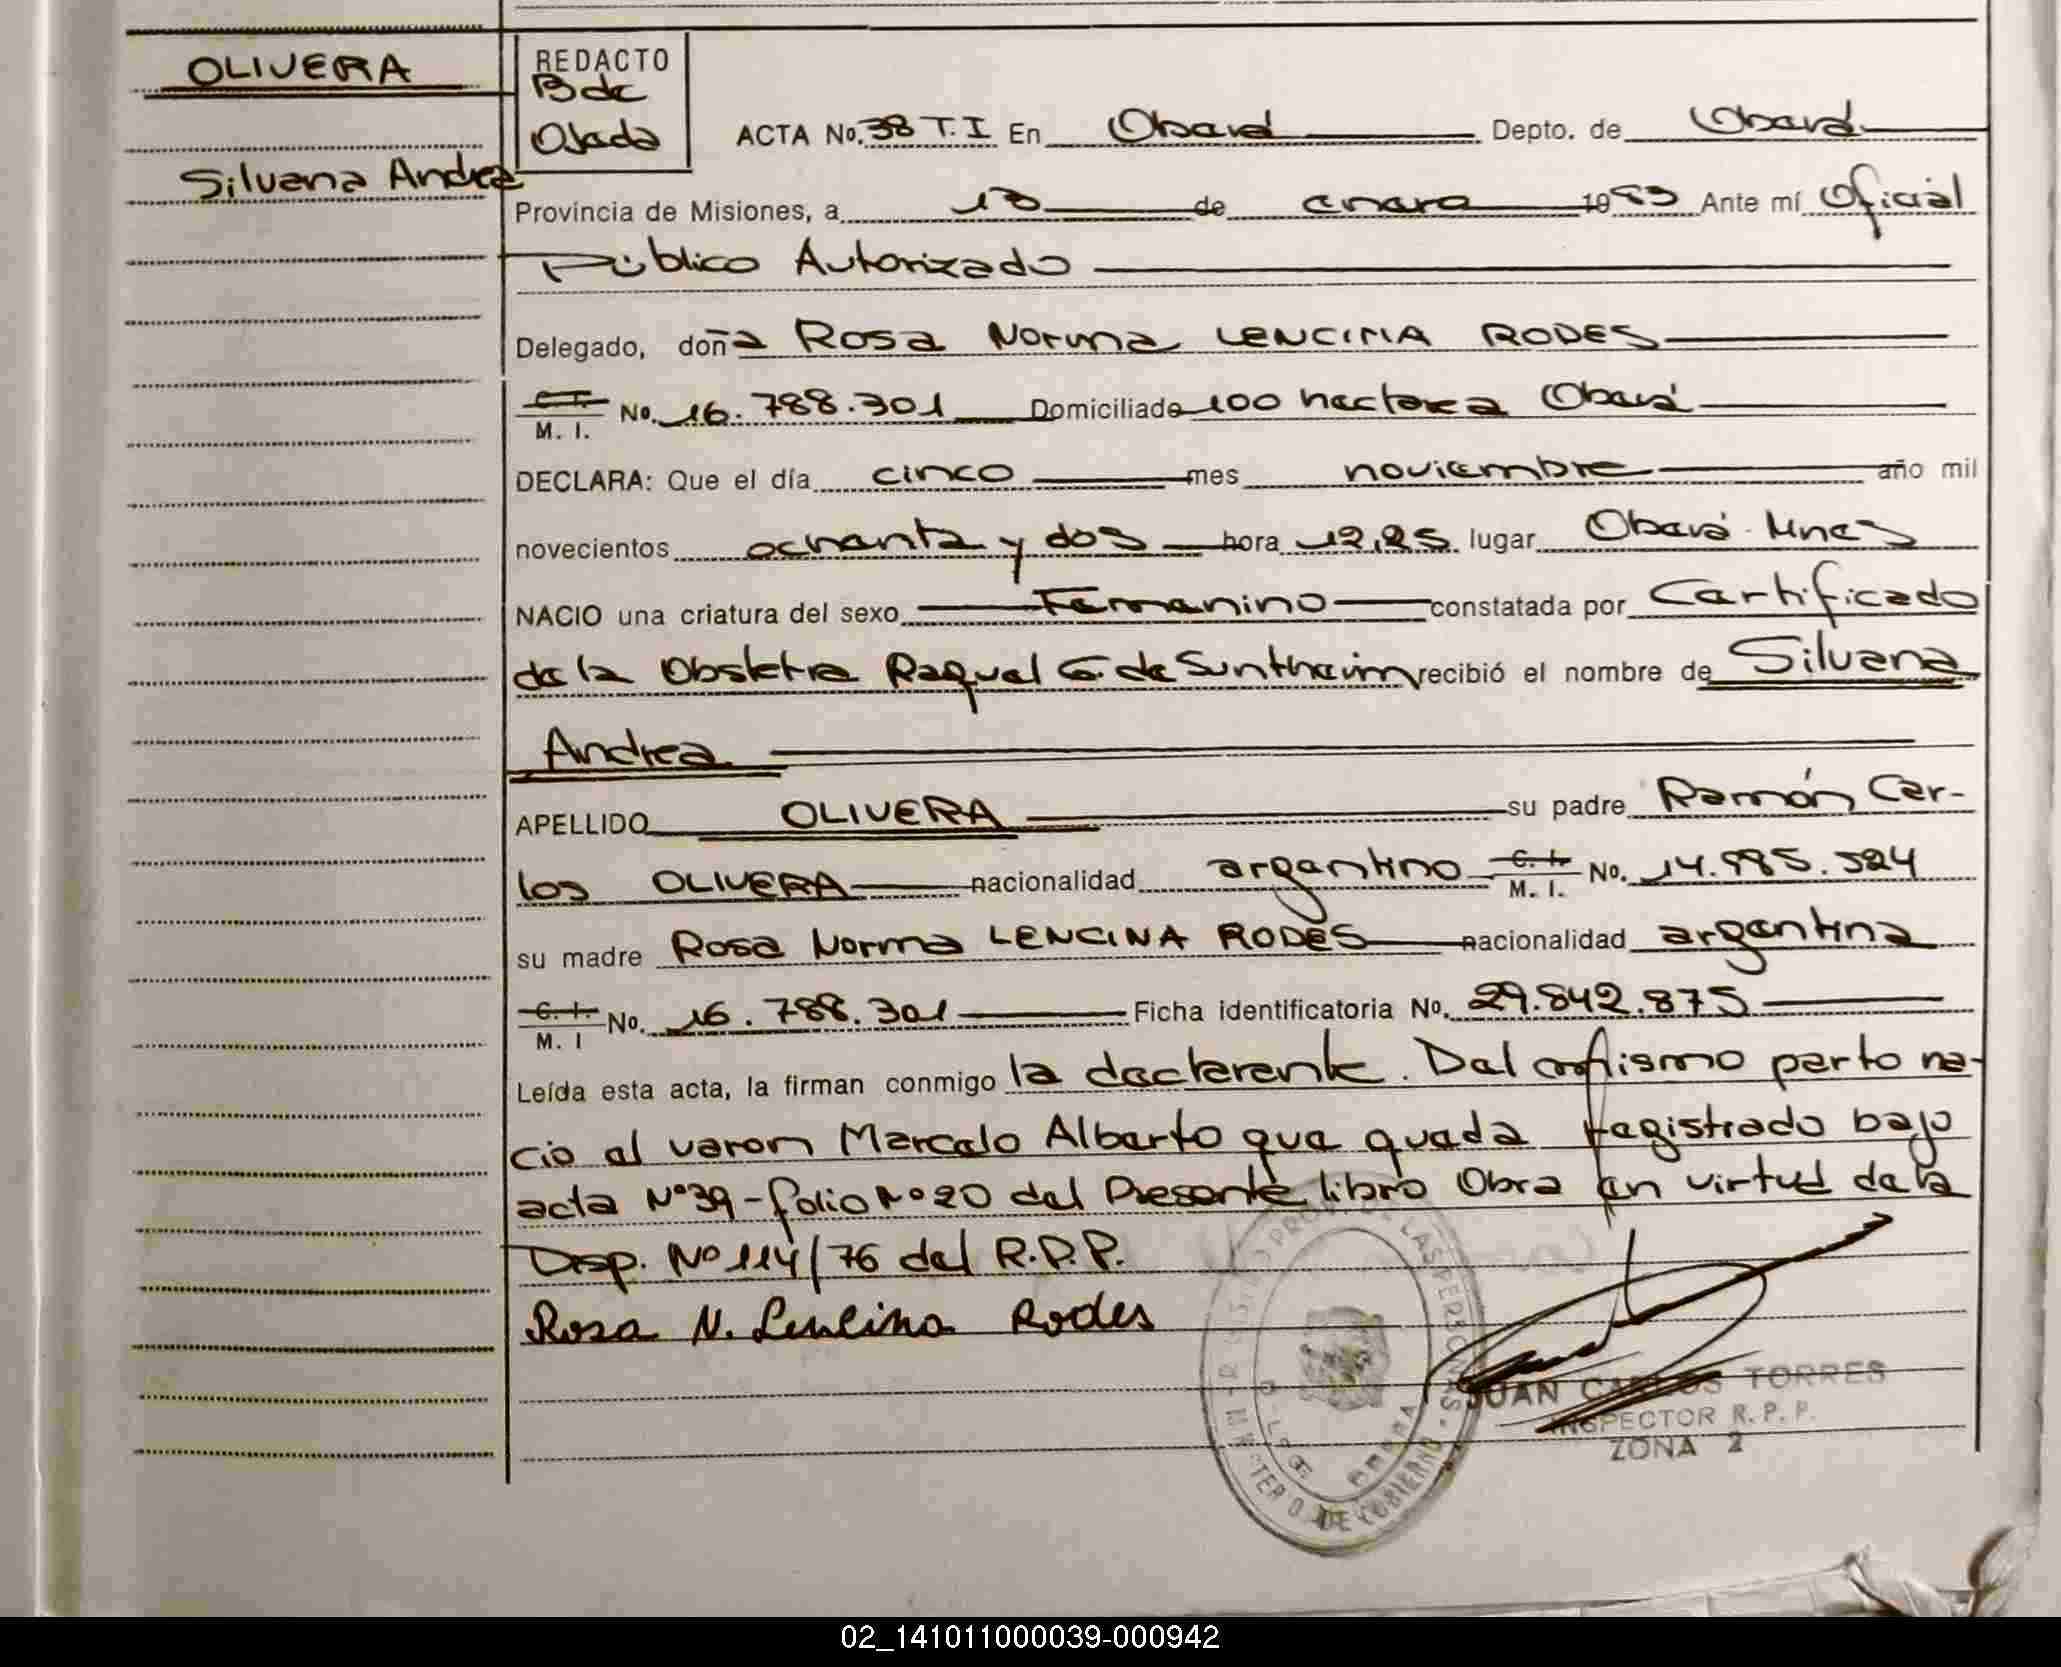 OLIVERA
Silvana Andrea
REDACTO
Bde
Ojeda
ACTA No. 38 T.I En Oberá Depto. de Oberá
Provincia de Misiones, a 13 de enero 1983 Ante mí Oficial
Público Autorizado
Delegado, doña Rosa Norma LENCINA RODES
C.I. M. I. No. 16.788.301 Domiciliado 100 hectarea Oberá
DECLARA: Que el día cinco mes noviembre año mil
novecientos ochenta y dos hora 12,25 lugar Oberá-Mnes
NACIO una criatura del sexo Femenino constatada por Certificado
de la Obstetra Raquel G. de Suntheim recibió el nombre de Silvana
Andrea
APELLIDO OLIVERA su padre Ramón Car-
los OLIVERA nacionalidad argentino C. I. M. I. No. 14.985.524
su madre Rosa Norma LENCINA RODES nacionalidad argentina
C. I. M. I No. 16.788.301 Ficha identificatoria No. 29.842.875
Leída esta acta, la firman conmigo la declarente. Del mismo parto na-
cio el varon Marcelo Alberto que queda registrado bajo
acta Nº39-folio Nº20 del Presente libro Obra en virtud de la
Disp. Nº114/76 del R.P.P.
Rosa N. Lencina Rodes
JUAN CARLOS TORRES
INSPECTOR R. P. P.
ZONA 2
DE LAS PERSONAS
MINISTERIO DE GOBIERNO
02_141011000039-000942